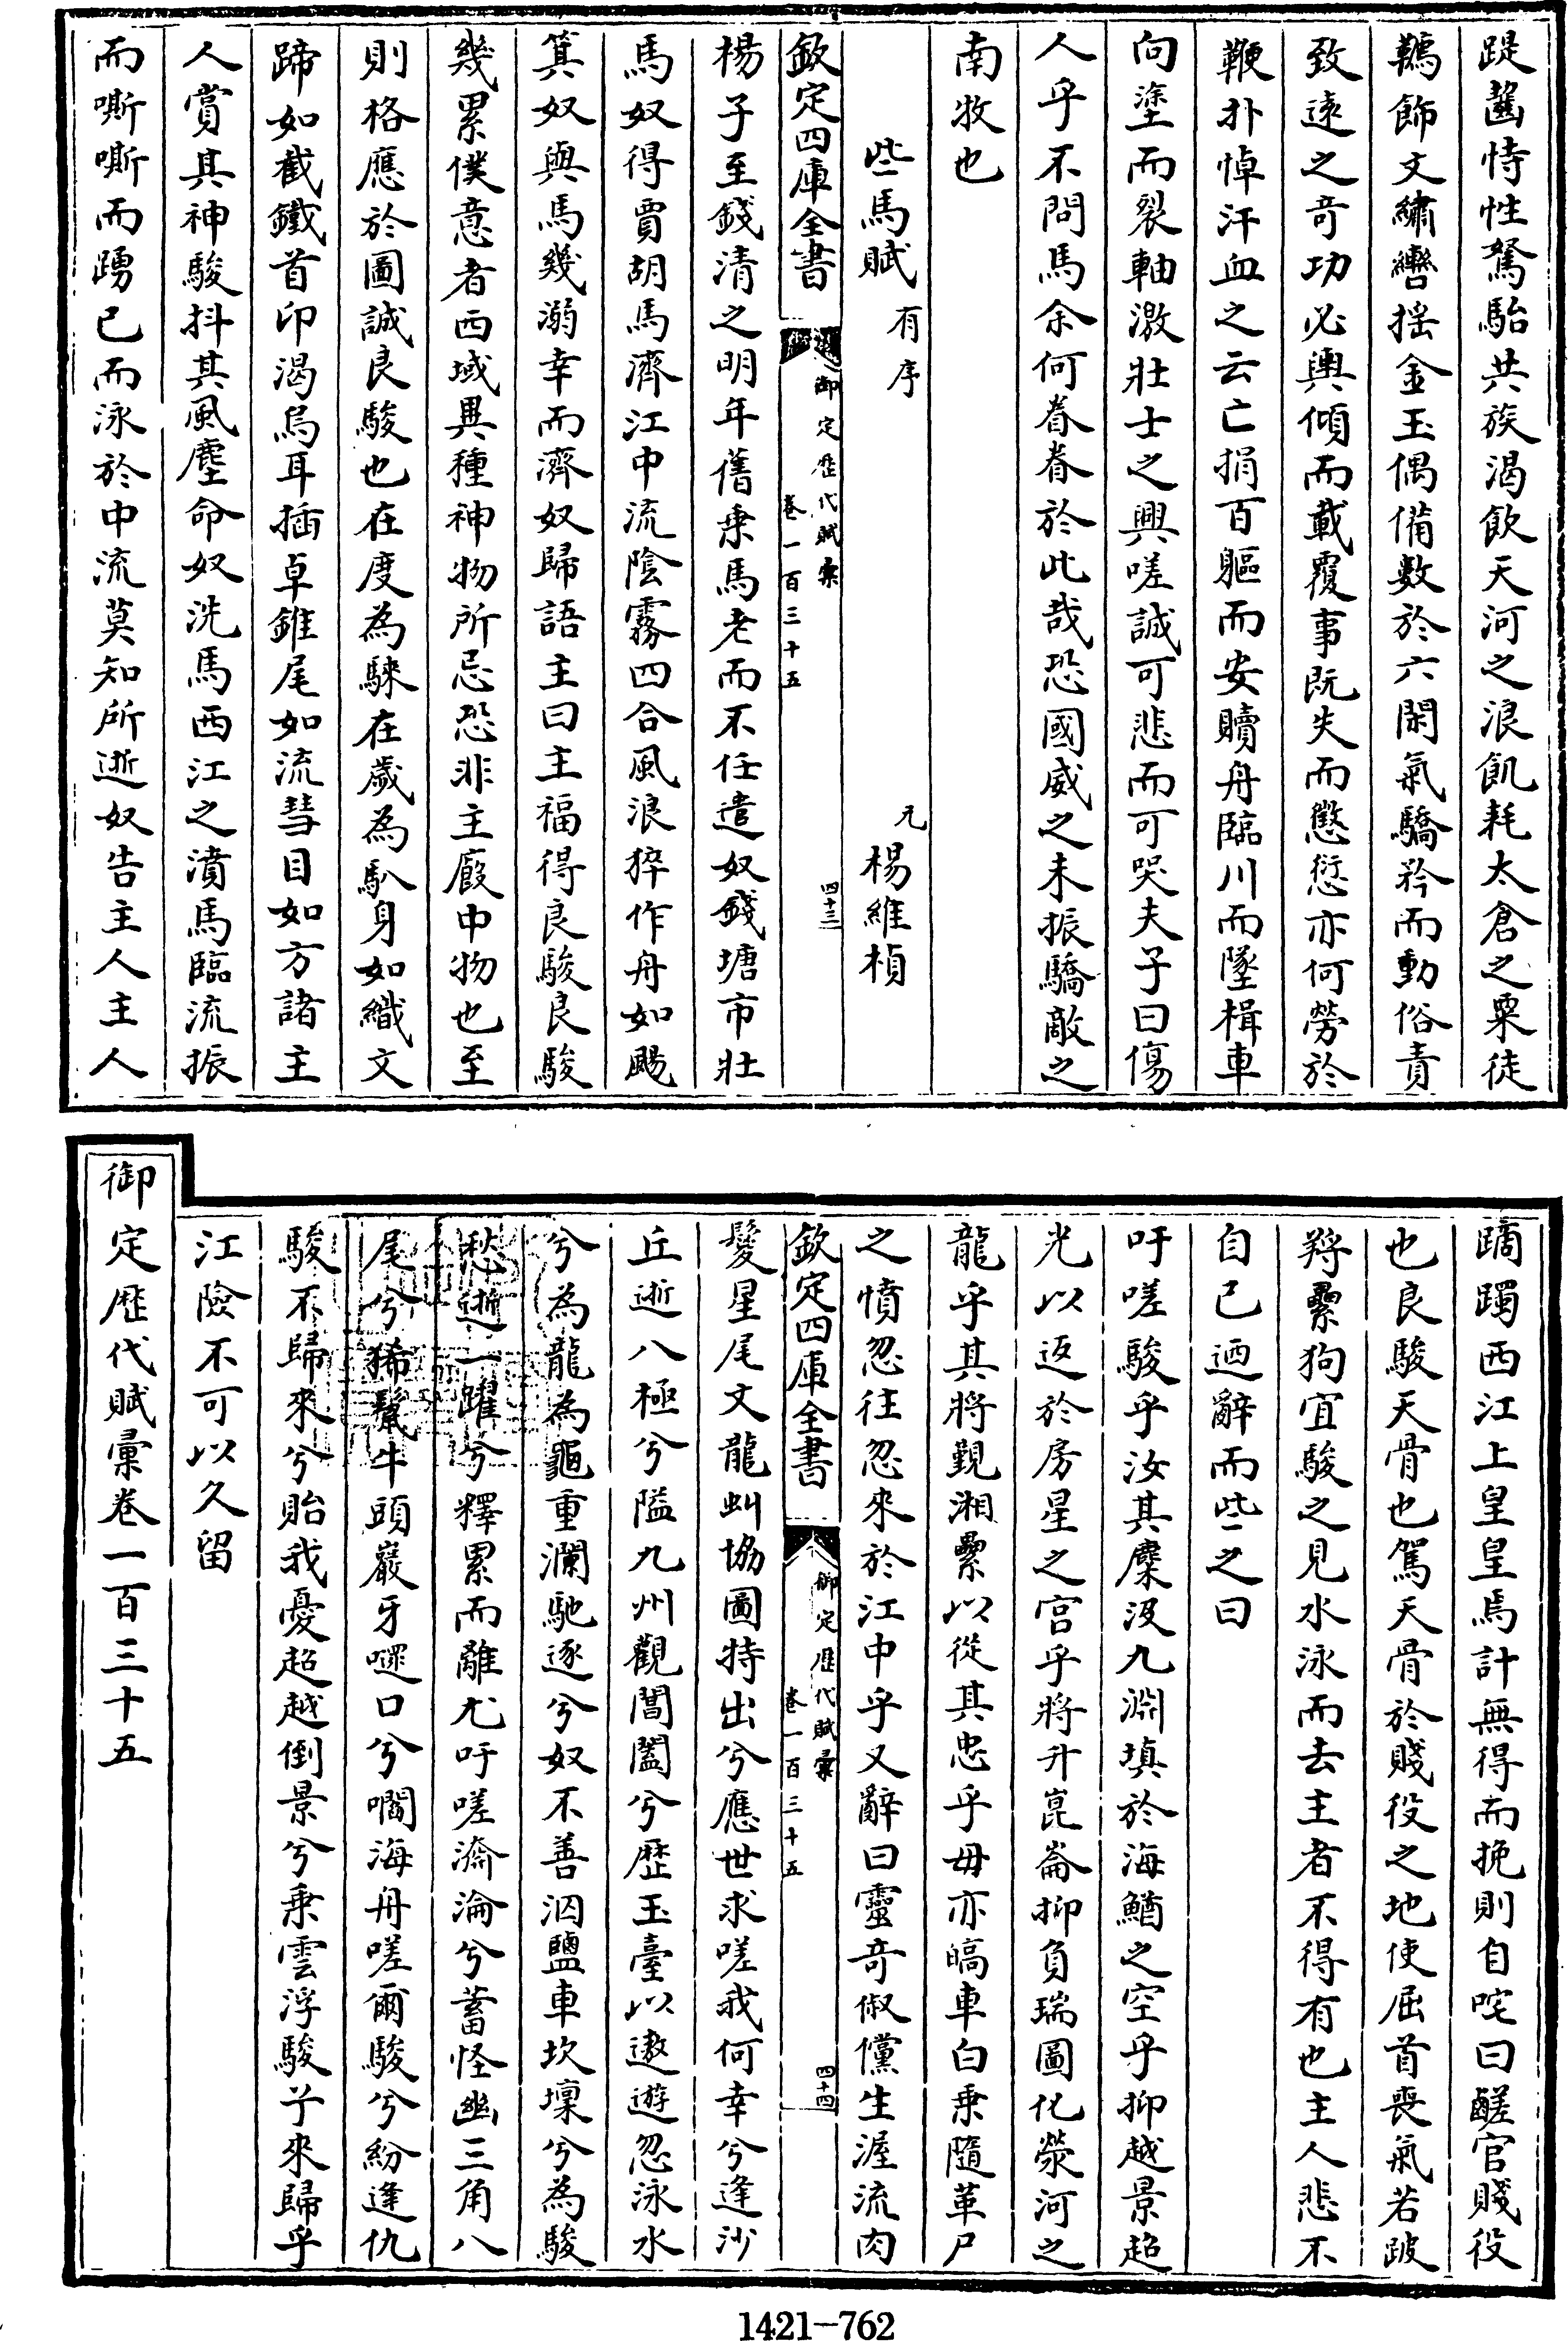 踶齧恃性駑駘共族渴飲天河之浪飢耗太倉之粟徒
韉飾文繡轡揺金玉偶備數於六閑氣驕矜而動俗責
致遠之竒功必輿傾而載覆事既失而懲愆亦何勞於
鞭扑悼汗血之云亡捐百軀而安贖舟臨川而墜楫車
向塗而裂軸激壯士之興嗟誠可悲而可哭夫子曰傷
人乎不問馬余何眷眷於此哉恐國威之未振驕敵之
南牧也
些馬賦有序　元楊維楨
欽定四庫全書　御定歴代賦彙　卷一百三十五　四十三
楊子至錢清之明年舊乗馬老而不任遣奴錢塘市壯
馬奴得賈胡馬濟江中流陰霧四合風浪猝作舟如颺
箕奴與馬幾溺幸而濟奴歸語主曰主福得良駿良駿
幾累僕意者西域異種神物所忌恐非主廐中物也至
則格應於圖誠良駿也在度為騋在歲為馴身如織文
蹄如截鐵首印渴烏耳插卓錐尾如流彗目如方諸主
人賞其神駿抖其風塵命奴洗馬西江之濆馬臨流振
而嘶嘶而踴已而泳於中流莫知所逝奴告主人主人
蹢躅西江上皇皇焉計無得而挽則自咤曰鹺官賤役
也良駿天骨也駕天骨於賤役之地使屈首喪氣若跛
牂纍狗宜駿之見水泳而去主者不得有也主人悲不
自已迺辭而些之曰
吁嗟駿乎汝其麋没九淵填於海鰌之空乎抑越景超
光以返於房星之宮乎將升崑崙抑負瑞圖化滎河之
龍乎其將覲湘纍以從其忠乎毋亦皜車白乗隨革尸
之憤忽往忽來於江中乎又辭曰靈竒俶儻生渥流肉
欽定四庫全書　御定歴代賦彙　卷一百三十五　四十四
鬉星尾文龍虬協圖特出兮應世求嗟我何幸兮逢沙
丘逝八極兮隘九州觀閶闔兮歴玉臺以遨遊忽泳水
兮為龍為龜重瀾馳逐兮奴不善泅鹽車坎壈兮為駿
愁逝一躍兮釋累而離尤吁嗟潝淪兮蓄怪幽三角八
尾兮豨鬣牛頭巖牙嚃口兮㘚海舟嗟爾駿兮紛逢仇
駿不歸來兮貽我憂超越倒景兮乗雲浮駿兮來歸乎
江險不可以久留
御定歴代賦彙卷一百三十五
1421—762